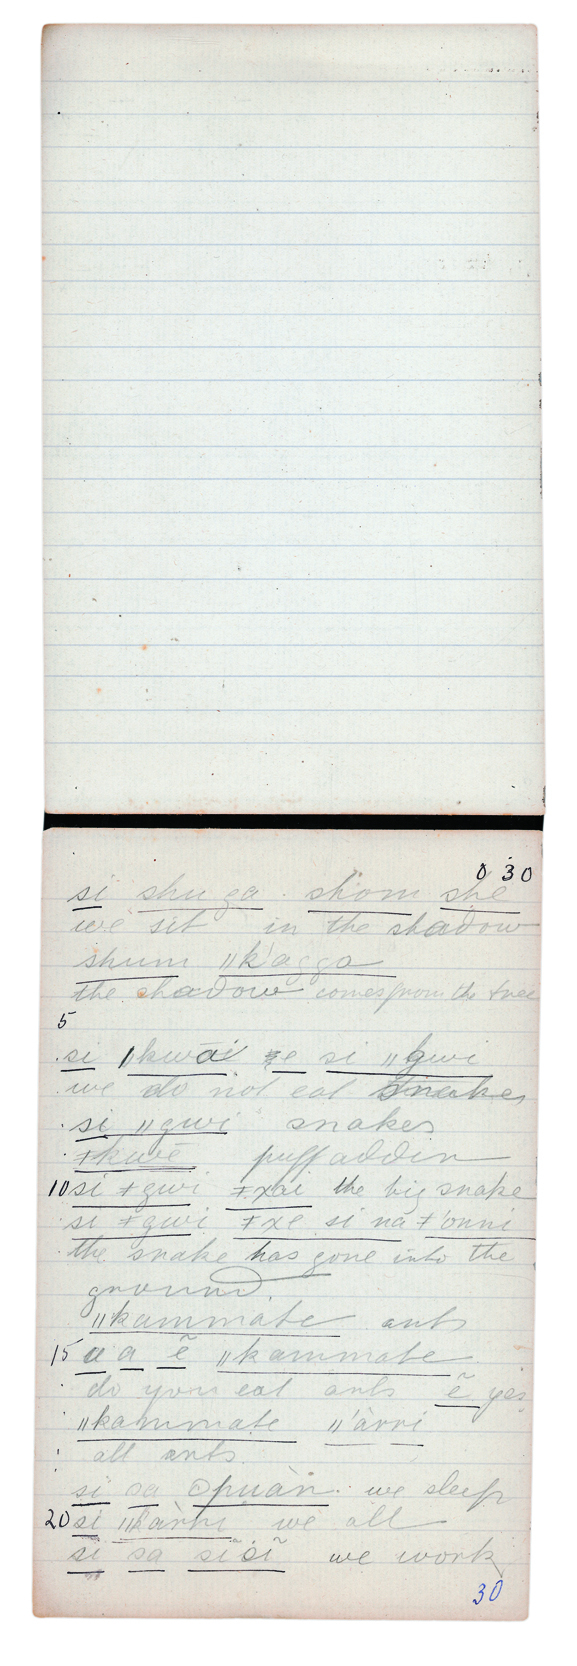 0 30
si shu ga shom she
we sit in the shadow
shum ǁk'agga
the shadow comes from the tree
5
si ǁkwāi se si ǁgwi
we do not eat snakes
si ǁgwi snakes
ǂkwē puff addin
10 si ǂgwi ǂxai the big snake
si ǂgwi ǂxe si na ǂ'onni
the snake has gone into the
ground.
ǁkammate ants
15 u a ẽ ǁkammate
do you eat ants ẽ yes
ǁkammate ǁ'àrri
all ants
si sa ʘpuàn we sleep
20 si ǁ'àrri we all
si sa sĩsĩ we work
30